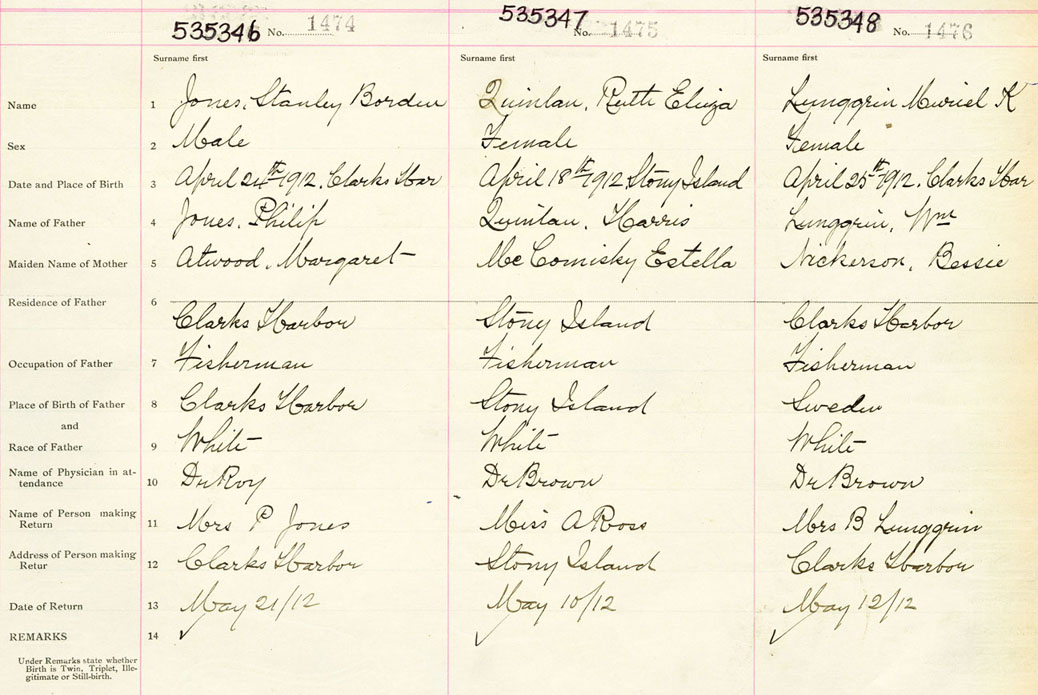 535346 No. 1474 535347 No. 1475 535348 No. 1476
Surname first Surname first Surname first
Name 1 Jones, Stanley Borden Quinlan, Ruth Eliza Lunggrin Muriel K
Sex 2 Male Female Female
Date and Place of Birth 3 April 24th 1912. Clarks Har April 18th 1912 Stony Island April 25th 1912. Clarks Har
Name of Father 4 Jones, Philip Quinlan, Harris Lunggrin, Wm
Maiden Name of Mother 5 Atwood, Margaret McComisky Estella Nickerson, Bessie
Residence of Father 6
Clarks Harbor Stony Island Clarks Harbor
Occupation of Father 7 Fisherman Fisherman Fisherman
Place of Birth of Father 8 Clarks Harbor Stony Island Sweden
and
Race of Father 9 White White White
Name of Physician in at-
tendance 10 Dr Roy Dr Brown Dr Brown
Name of Person making
Return 11 Mrs P Jones Miss A Ross Mrs B Lunggrin
Address of Person making
Retur 12 Clarks Harbor Stony Island Clarks Harbor
Date of Return 13 May 21/12 May 10/12 May 12/12
REMARKS 14
Under Remarks state whether
Birth is Twin, Triplet, Ille-
gitimate or Still-birth.